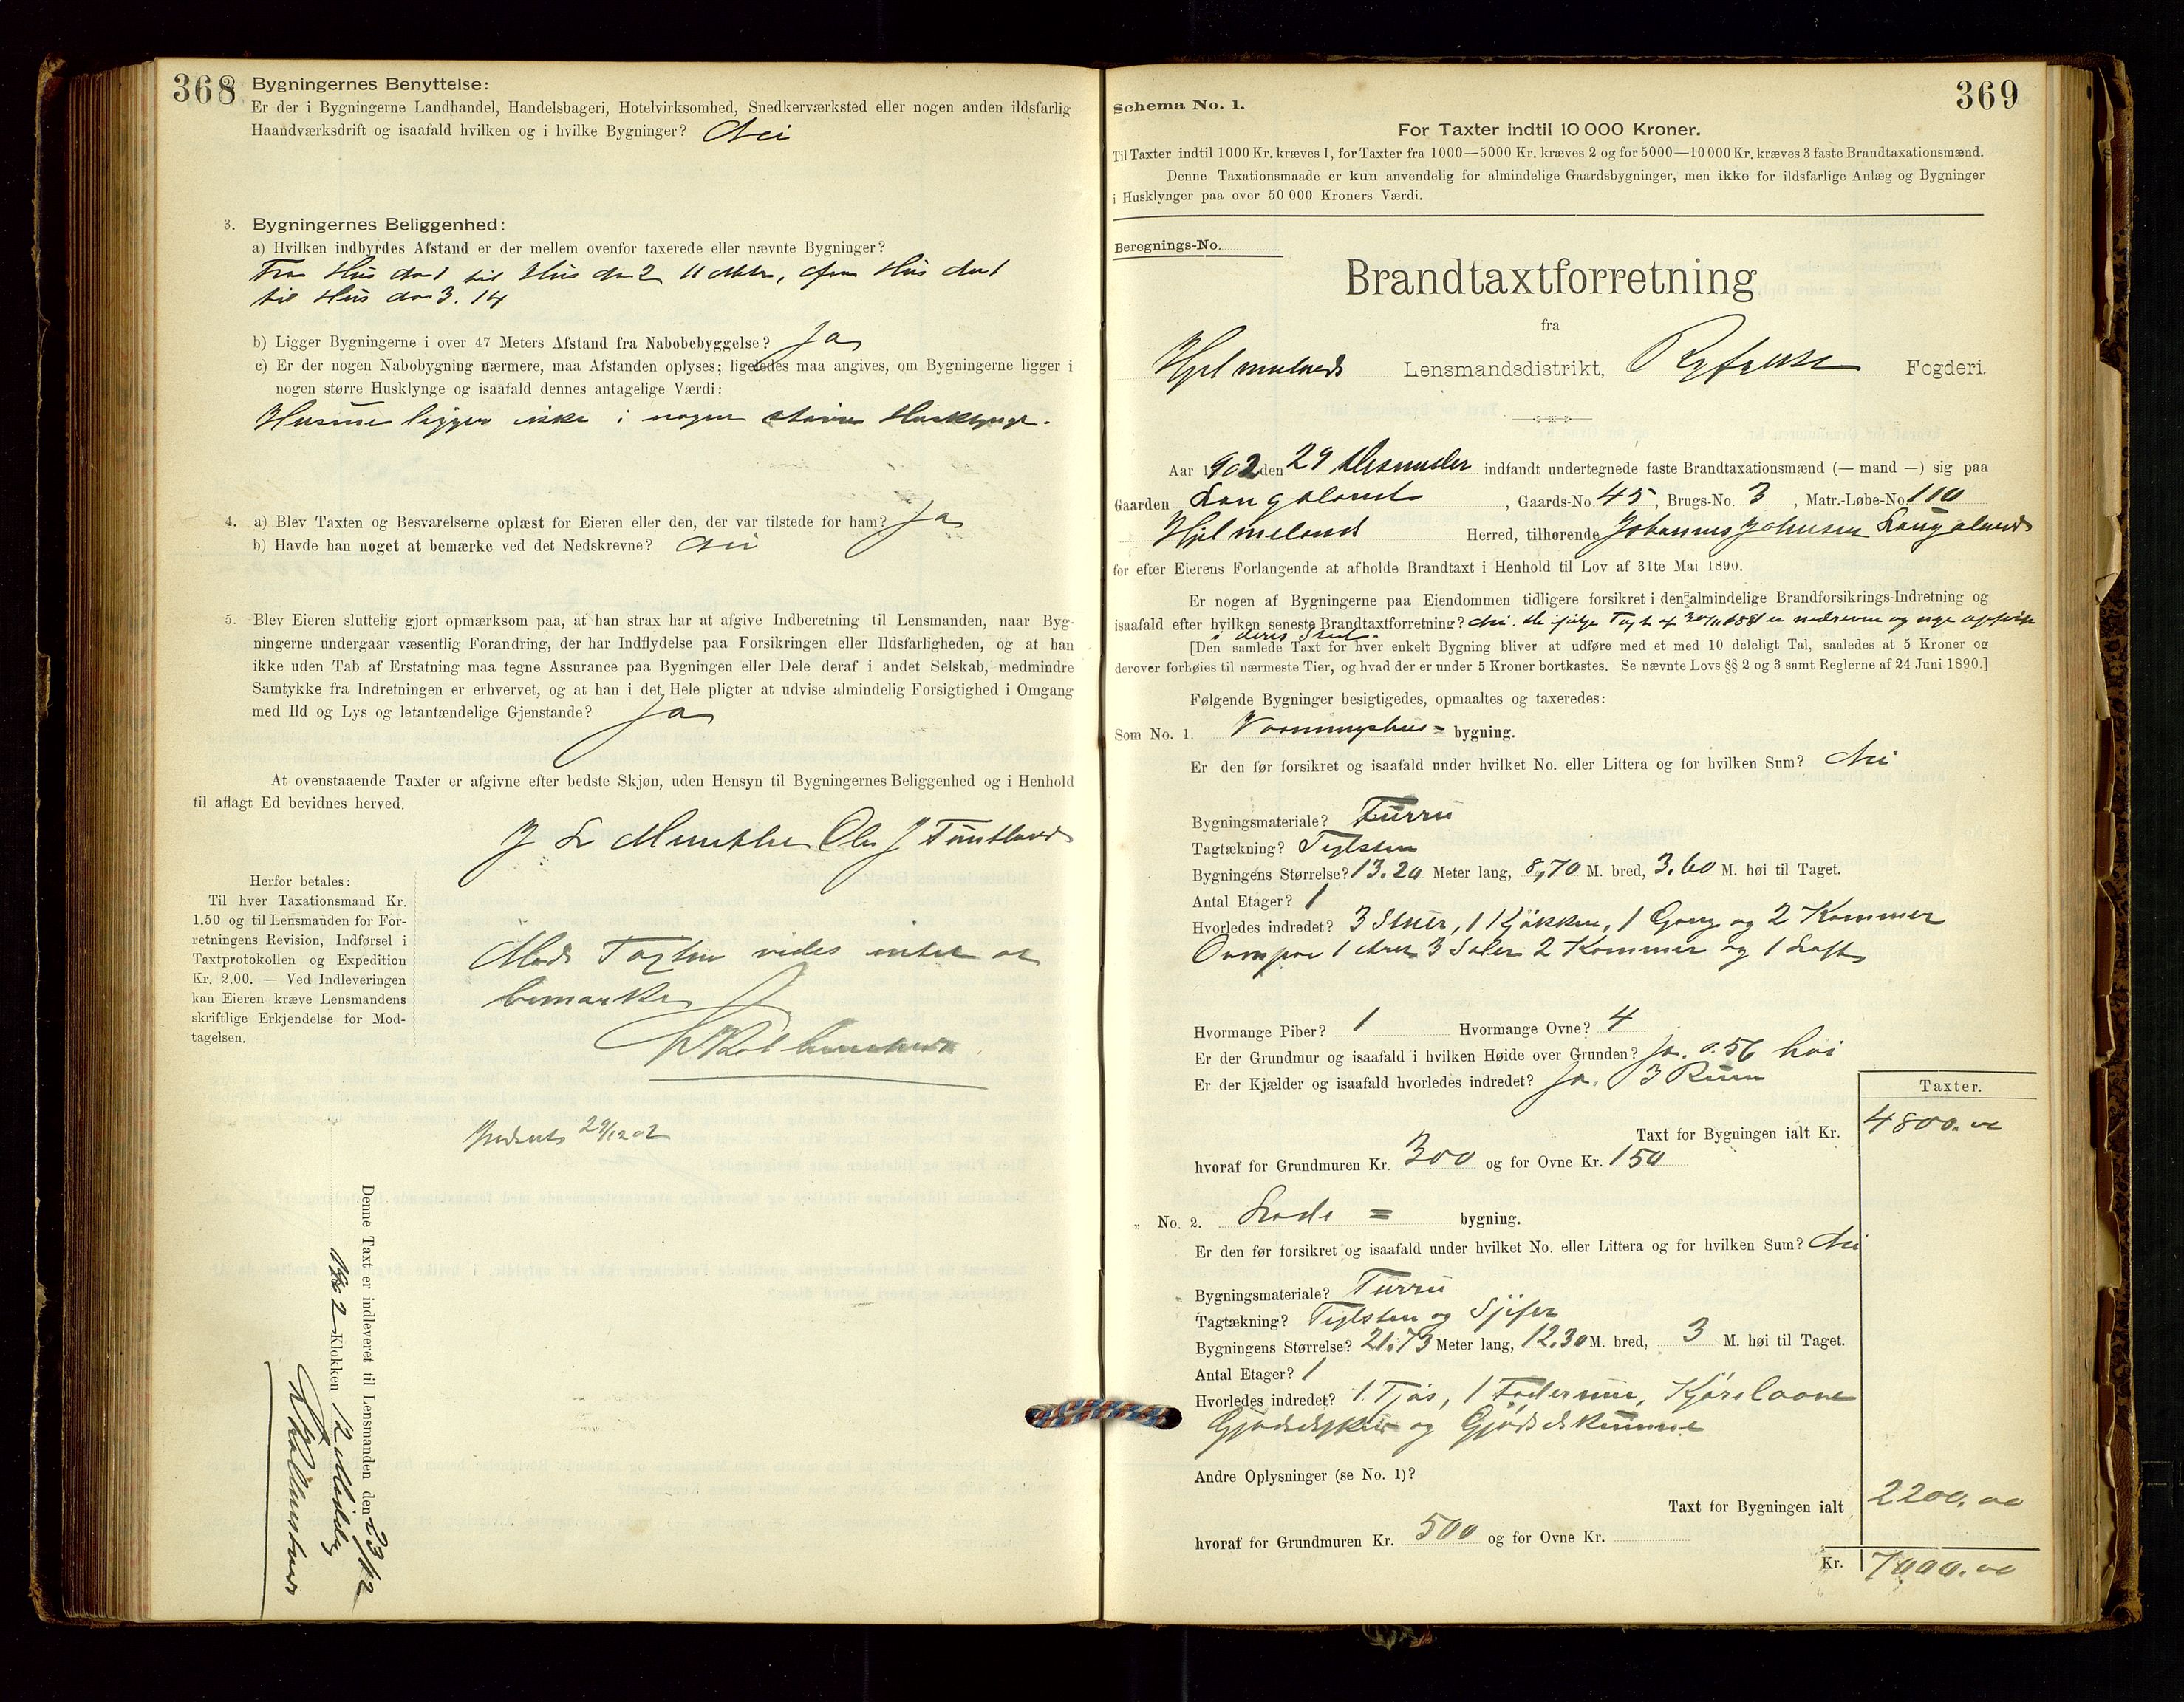 368
Bygningernes Benyttelse:
Er der i Bygningerne Landhandel, Handelsbageri, Hotelvirksomhed, Snedkerværksted eller nogen anden ildsfarlig
Haandværksdrift og isaafald hvilken og i hvilke Bygninger? Nei
3. Bygningernes Beliggenhed:
a) Hvilken indbyrdes Afstand er der mellem ovenfor taxerede eller nævnte Bygninger?
Fra Hus No 1 til Hus No 2 11 Meter, fra Hus No 1
til Hus No 3. 14
b) Ligger Bygningerne i over 47 Meters Afstand fra Nabobebyggelse? Ja
c) Er der nogen Nabobygning nærmere, maa Afstanden oplyses; ligeledes maa angives, om Bygningerne ligger i
nogen større Husklynge og isaafald dennes antagelige Værdi:
Husene ligger ikke i nogen større Husklynge.
4. a) Blev Taxten og Besvarelserne oplæst for Eieren eller den, der var tilstede for ham? Ja
b) Havde han noget at bemærke ved det Nedskrevne? Nei
5. Blev Eieren sluttelig gjort opmærksom paa, at han strax har at afgive Indberetning til Lensmanden, naar Byg-
ningerne undergaar væsentlig Forandring, der har Indflydelse paa Forsikringen eller Ildsfarligheden, og at han
ikke uden Tab af Erstatning maa tegne Assurance paa Bygningen eller Dele deraf i andet Selskab, medmindre
Samtykke fra Indretningen er erhvervet, og at han i det Hele pligter at udvise almindelig Forsigtighed i Omgang
med Ild og Lys og letantændelige Gjenstande? Ja
At ovenstaaende Taxter er afgivne efter bedste Skjøn, uden Hensyn til Bygningernes Beliggenhed og i Henhold
til aflagt Ed bevidnes herved.
J L Munthe Ole J
Herfor betales:
Til hver Taxationsmand Kr.
1.50 og til Lensmanden for For-
retningens Revision, Indførsel i
Taxtprotokollen og Expedition
Kr. 2.00. — Ved Indleveringen
kan Eieren kræve Lensmandens
skriftlige Erkjendelse for Mod-
tagelsen.
Mod Taxten vides intet at
bemærke
29/12 02
Denne Taxt er indleveret til Lensmanden den 23/12
1902 Klokken 12 Middag
369
Schema No. 1.
For Taxter indtil 10 000 Kroner.
Til Taxter indtil 1000 Kr. kræves 1, for Taxter fra 1000—5000 Kr. kræves 2 og for 5000—10 000 Kr. kræves 3 faste Brandtaxationsmænd.
Denne Taxationsmaade er kun anvendelig for almindelige Gaardsbygninger, men ikke for ildsfarlige Anlæg og Bygninger
i Husklynger paa over 50 000 Kroners Værdi.
Beregnings-No.
Brandtaxtforretning
fra
Hjelmelands Lensmandsdistrikt, Ryfylke Fogderi.
Aar 1902 den 29 indfandt undertegnede faste Brandtaxationsmænd (— mand —) sig paa
Gaarden Langeland, Gaards-No. 45, Brugs-No. 3, Matr.-Løbe-No. 110
Hjelmeland Herred, tilhørende Johannes Johnsen Langeland
for efter Eierens Forlangende at afholde Brandtaxt i Henhold til Lov af 31te Mai 1890.
Er nogen af Bygningerne paa Eiendommen tidligere forsikret i den almindelige Brandforsikrings-Indretning og
isaafald efter hvilken seneste Brandtaxtforretning? Nei. De ifølge Taxt af er nedrevne og nye opført
i deres Sted.
[Den samlede Taxt for hver enkelt Bygning bliver at udføre med et med 10 deleligt Tal, saaledes at 5 Kroner og
derover forhøies til nærmeste Tier, og hvad der er under 5 Kroner bortkastes. Se nævnte Lovs §§ 2 og 3 samt Reglerne af 24 Juni 1890.]
Følgende Bygninger besigtigedes, opmaaltes og taxeredes:
Som No. 1. Vaaningshus= bygning.
Er den før forsikret og isaafald under hvilket No. eller Littera og for hvilken Sum? Nei
Bygningsmateriale? Furru
Tagtækning? Teglsten
Bygningens Størrelse? 13.20 Meter lang, 8,70 M. bred, 3.60 M. høi til Taget.
Antal Etager? 1
Hvorledes indredet? 3 Stuer, 1 Kjøkken, 1 Gang og 2 Kammer
Ovenpaa 1 3 Saler 2 Kammer og 1 Loft
Hvormange Piber? 1 Hvormange Ovne? 4
Er der Grundmur og isaafald i hvilken Høide over Grunden? Ja. 0.56 høi
Er der Kjælder og isaafald hvorledes indredet? Ja. 3 Rum
Taxter.
Taxt for Bygningen ialt Kr. 4800.00
hvoraf for Grundmuren Kr. 300 og for Ovne Kr. 150
„ No. 2. Lade = bygning.
Er den før forsikret og isaafald under hvilket No. eller Littera og for hvilken Sum? Nei
Bygningsmateriale? Furru
Tagtækning? Teglsten og Skifer
Bygningens Størrelse? 21.73 Meter lang, 12.30 M. bred, 3 M. høi til Taget.
Antal Etager? 1
Hvorledes indredet? 1 Fjøs, 1 Foderrum, Kjørelaave
og Gjødselkumme
Andre Oplysninger (se No. 1)?
Taxt for Bygningen ialt 2200.00
hvoraf for Grundmuren Kr. 500 og for Ovne Kr.
Kr. 7000.00